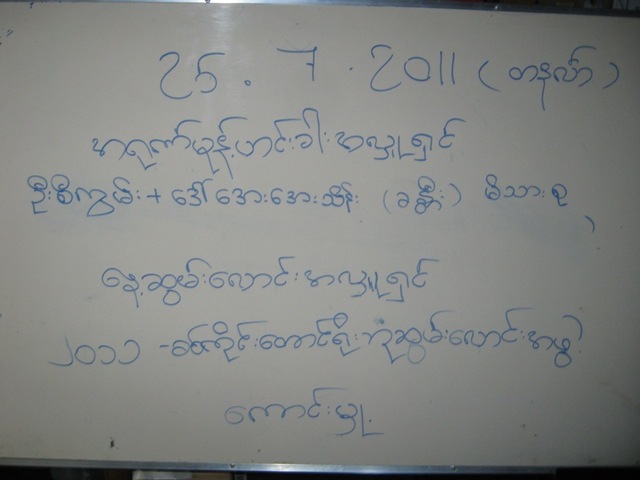 25.7.2011 (တနင်္လာ)
အရုဏ်မုန့်ဟင်းခါး အလှူရှင်
ဦးစီကွမ်း + ဒေါ်အေးအေးသိန်း (ခန္တီး) မိသားစု
နေ့ဆွမ်းလောင်းအလှူရှင်
၂၀၁၁ - စစ်ကိုင်းတောင်ရိုးဘုံဆွမ်းလောင်းအဖွဲ့
ကောင်းမှု